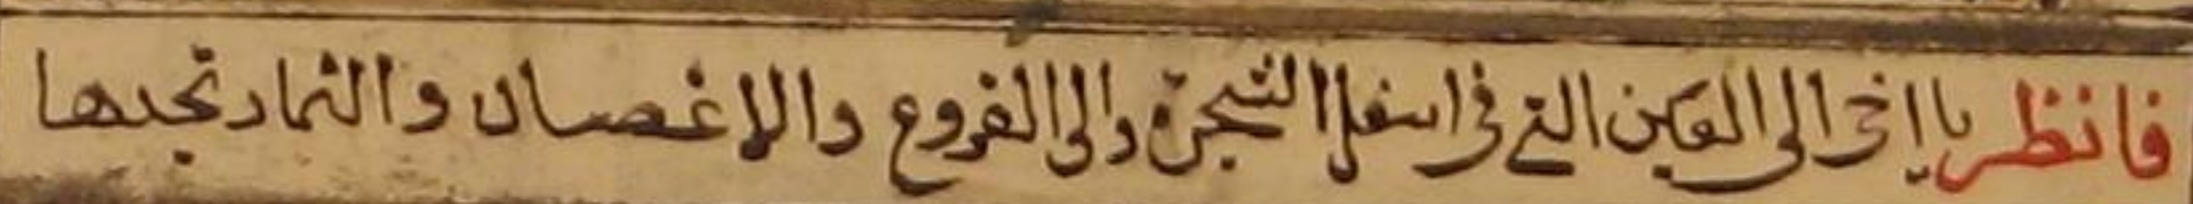 فانظر يا اخى الى العين التى فى اسفل الشجرة والى الفروع والاغصان والثمار تجدها